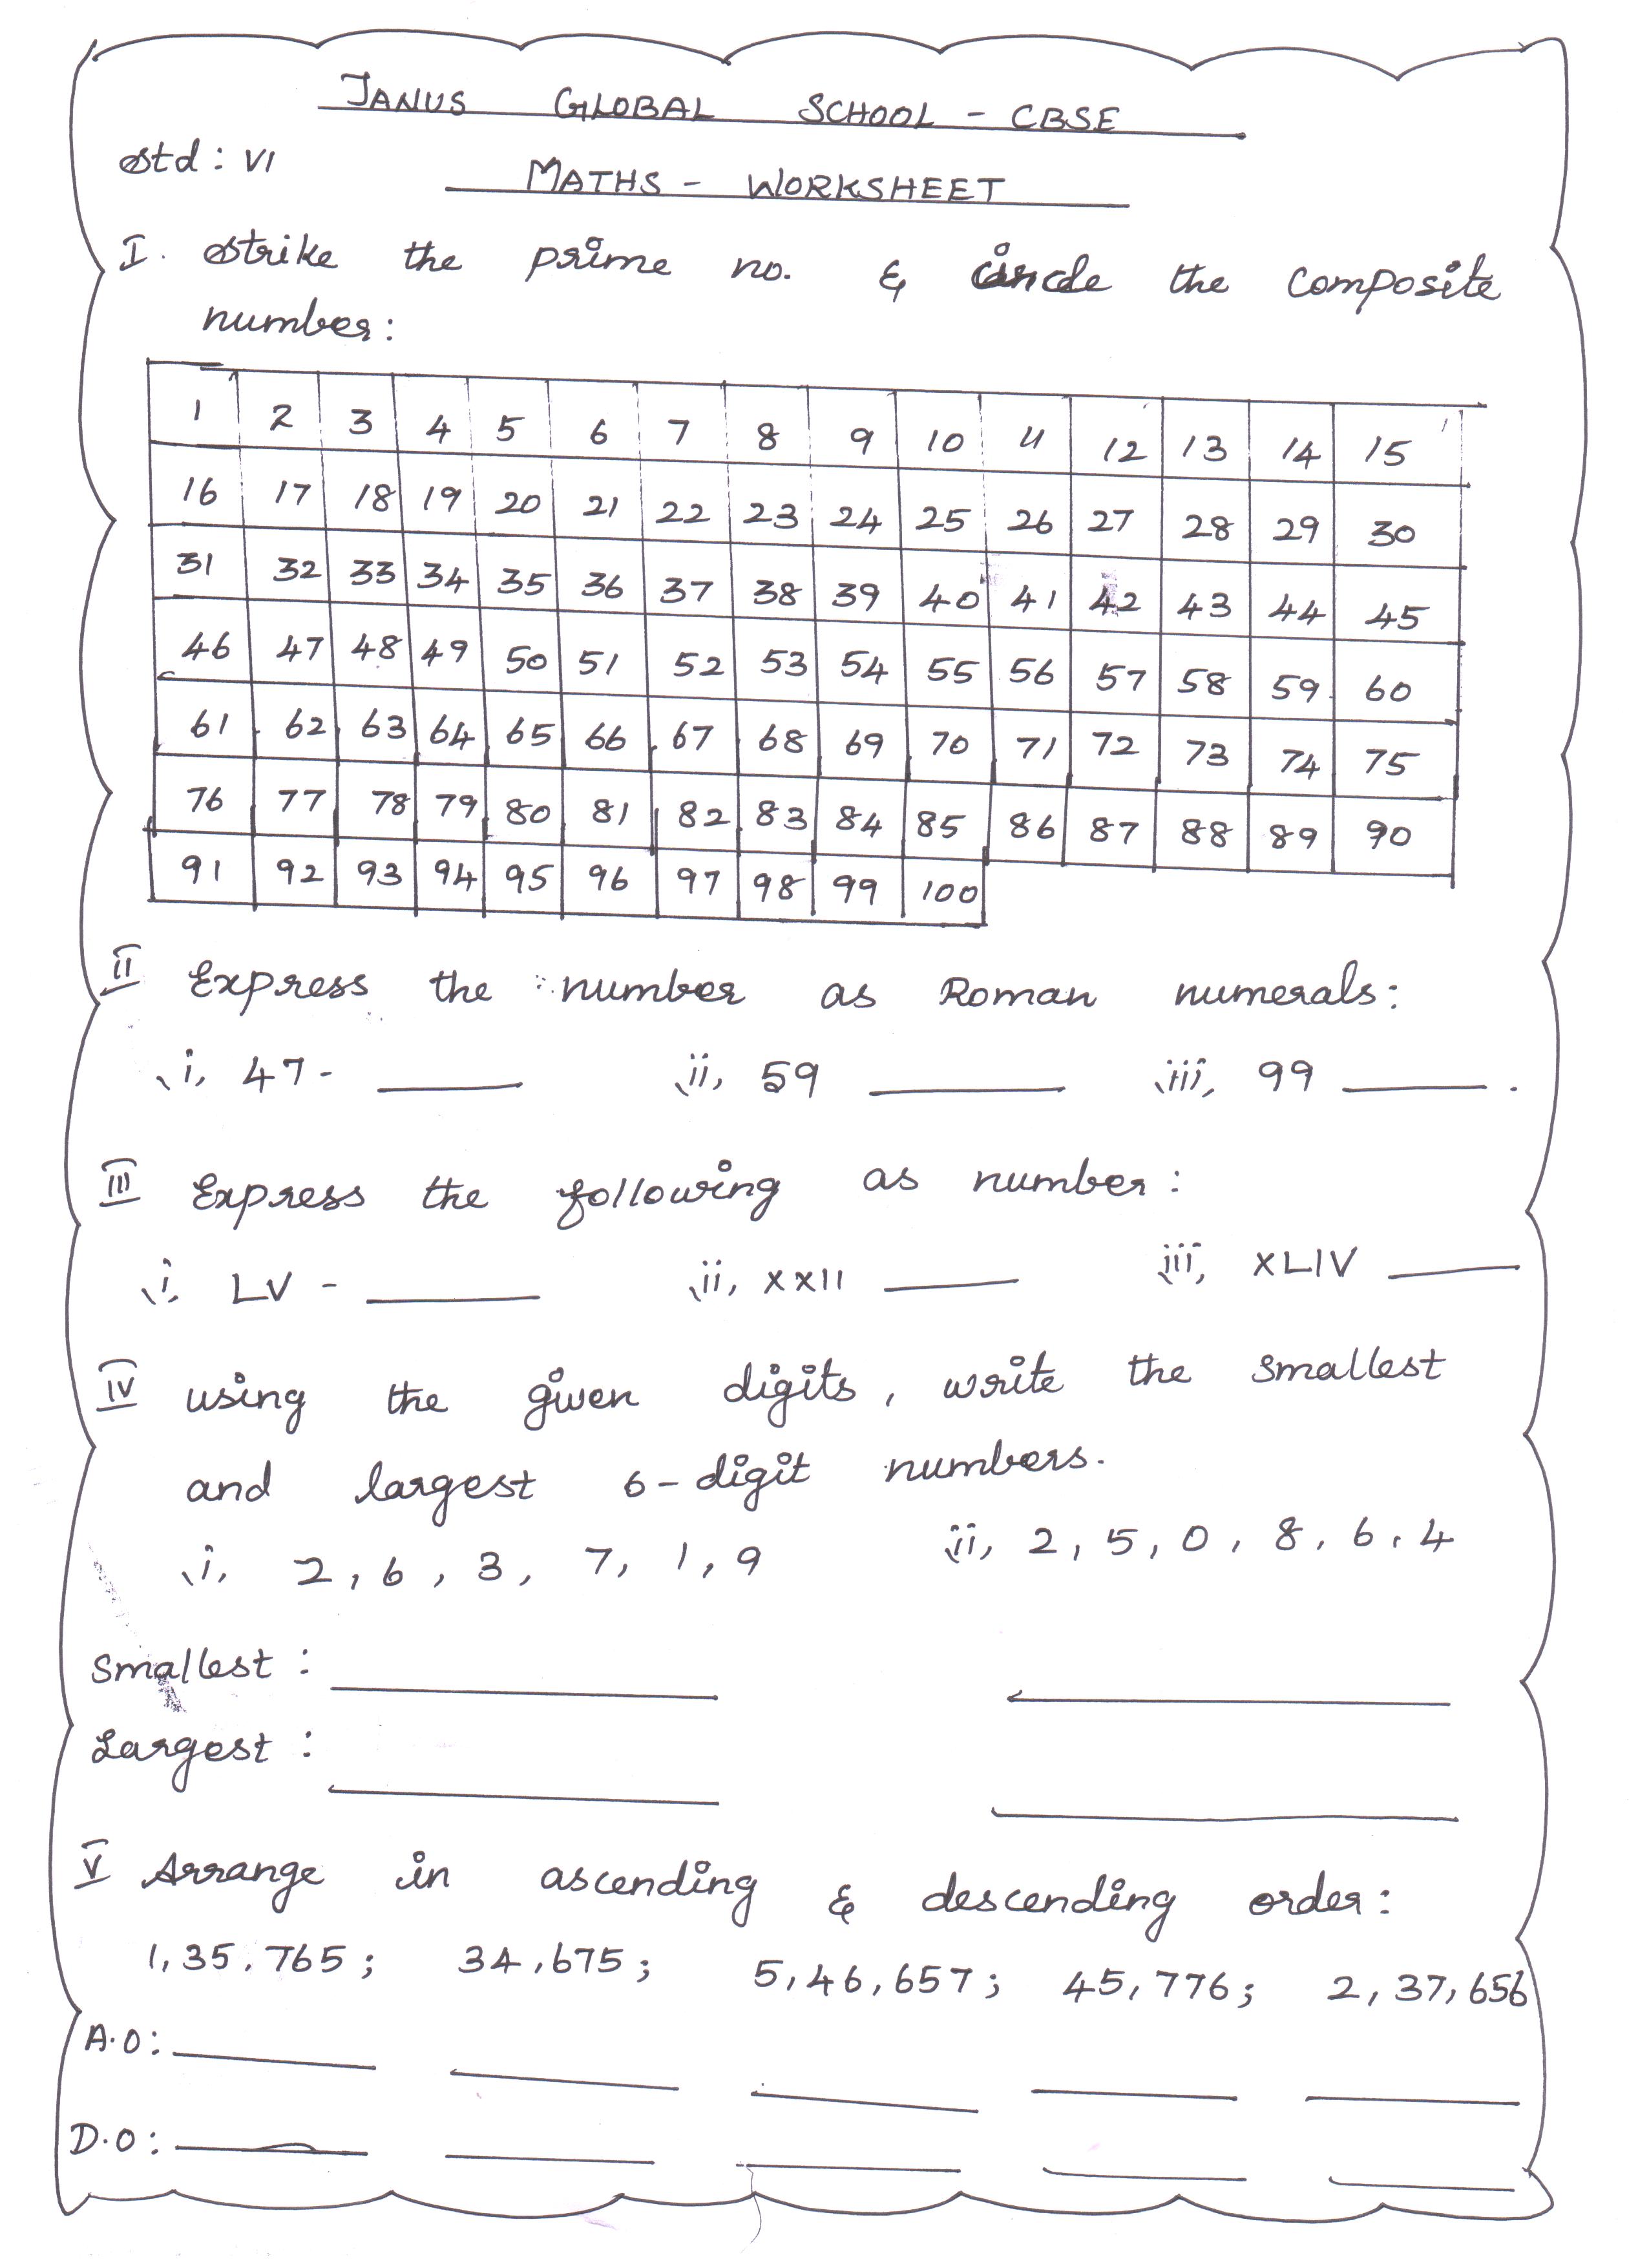 JANUS GLOBAL SCHOOL - CBSE
Std: VI
MATHS - WORKSHEET
I. Strike the prime no. & circle the composite
number:
1 2 3 4 5 6 7 8 9 10 11 12 13 14 15
16 17 18 19 20 21 22 23 24 25 26 27 28 29 30
31 32 33 34 35 36 37 38 39 40 41 42 43 44 45
46 47 48 49 50 51 52 53 54 55 56 57 58 59 60
61 62 63 64 65 66 67 68 69 70 71 72 73 74 75
76 77 78 79 80 81 82 83 84 85 86 87 88 89 90
91 92 93 94 95 96 97 98 99 100
II Express the number as Roman numerals:
i, 47 - ii, 59 iii, 99 .
III Express the following as number:
i, LV - ii, XXII iii, XLIV
IV using the given digits, write the smallest
and largest 6-digit numbers.
i, 2, 6, 3, 7, 1, 9 ii, 2, 5, 0, 8, 6, 4
Smallest:
Largest:
V Arrange in ascending & descending order:
1,35,765; 34,675; 5,46,657; 45,776; 2,37,656
A.O:
D.O: